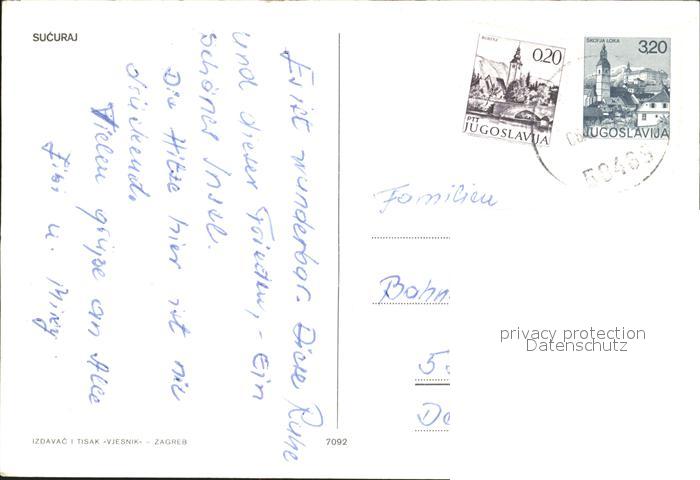 SUĆURAJ
Es ist wunderbar. Diese Ruhe
und dieser Frieden, - Ein
schöner Insel.
Die Hitze hier ist nie
drückend.
Vielen grüsse an Alle
Fini u.
BLED
0,20
PTT
JUGOSLAVIJA
ŠKOFJA LOKA
3,20
JUGOSLAVIJA
Familien
Bahn
5
De
privacy protection
Datenschutz
IZDAVAČ I TISAK »VJESNIK« – ZAGREB
7092